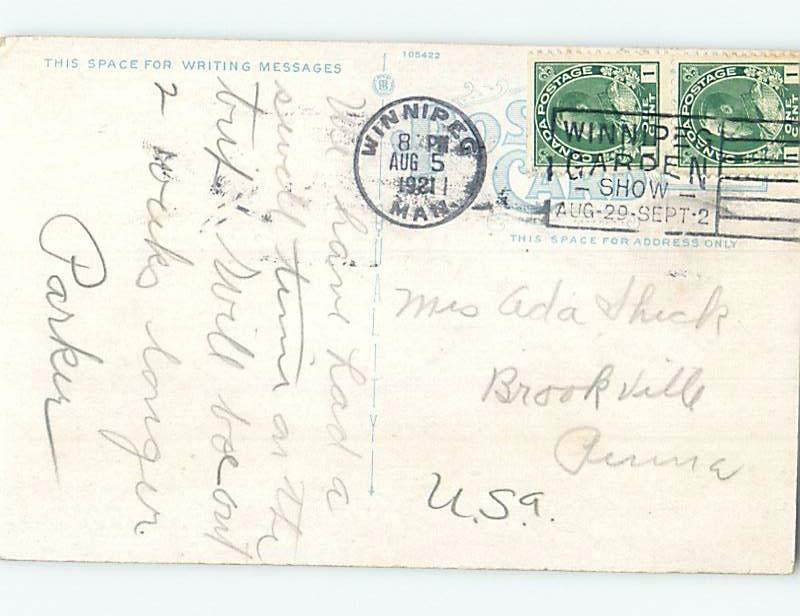 THIS SPACE FOR WRITING MESSAGES
105422
We have had a
swell time on the
trip. Will be out
2 weeks longer.
Parker
POST
CARD
WINNIPEG
8 PM
AUG 5
1921
MAN.
CANADA POSTAGE
1 CENT 1
CANADA POSTAGE
1 CENT 1
WINNIPEG
GARDEN
- SHOW -
AUG-29-SEPT-2
THIS SPACE FOR ADDRESS ONLY
Mrs Ada Shick
Brookville
Penna
U.S.a.